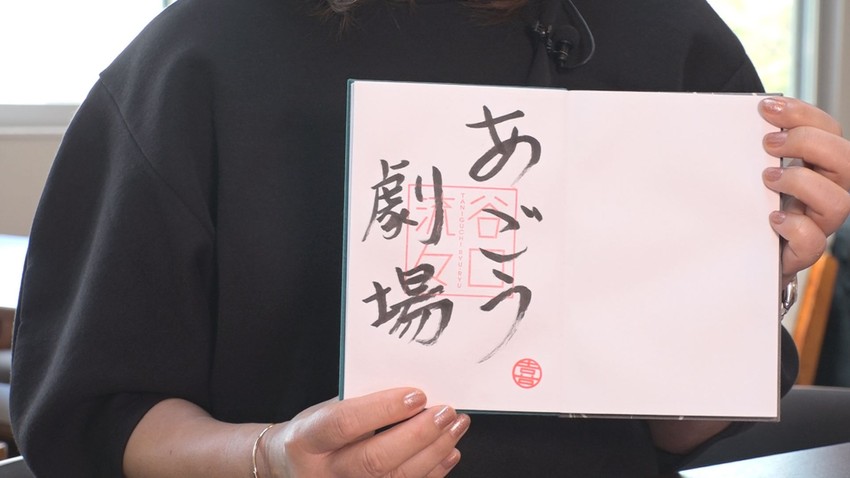 あごう
劇場
谷口
TANIGUCHI RYU RYU
流々